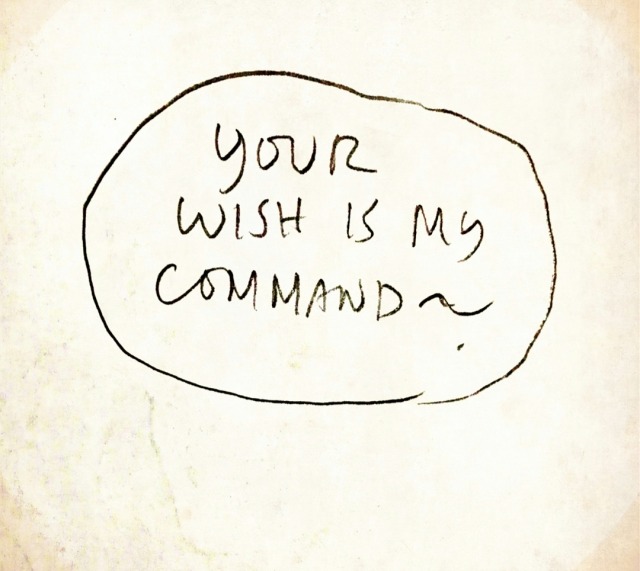 YOUR
WISH IS MY
COMMAND~